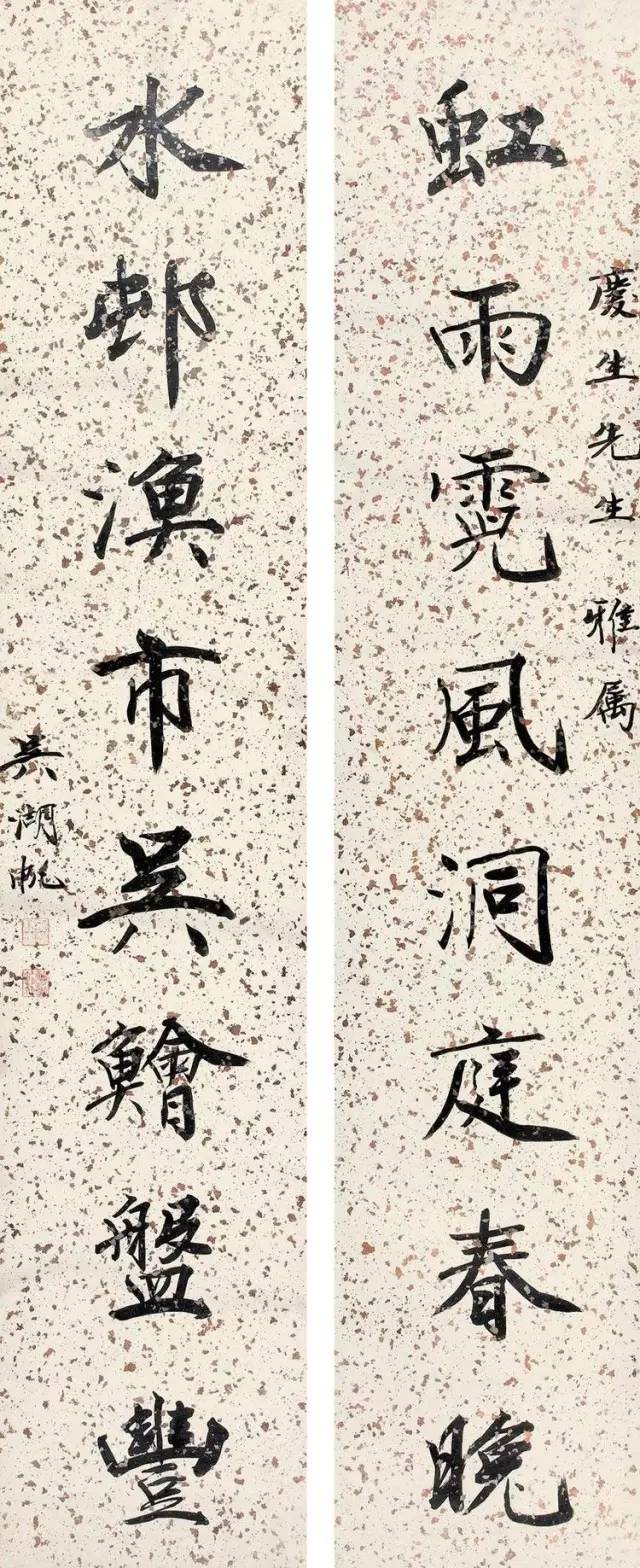 慶生先生雅属
虹雨霓風洞庭春晚
水邨漁市吳鱠盤豐
吳湖帆